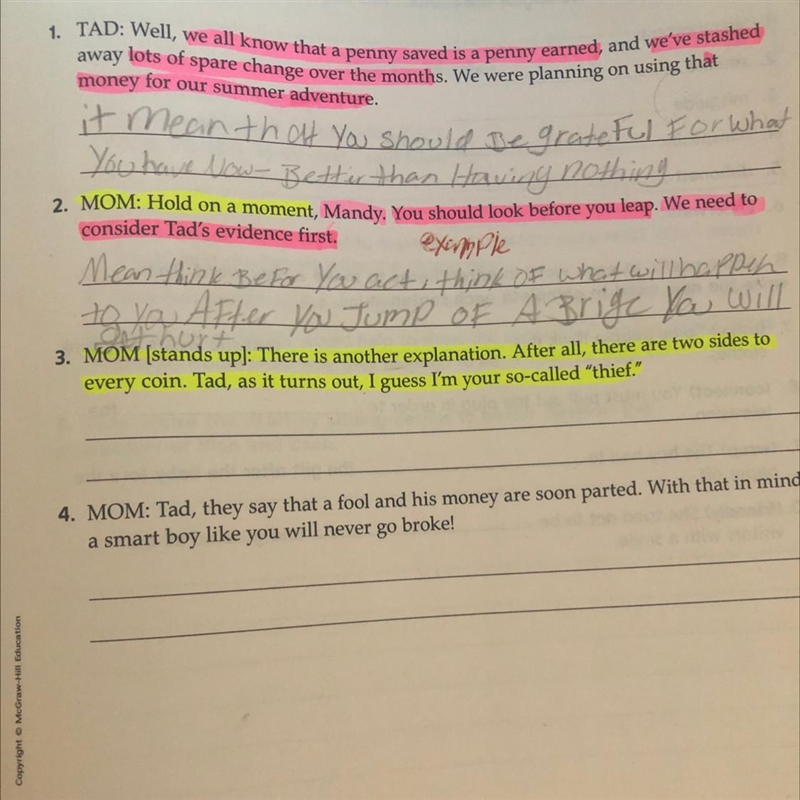 1. TAD: Well, we all know that a penny saved is a penny earned, and we've stashed
away lots of spare change over the months. We were planning on using that
money for our summer adventure.
it Mean that You should Be grateful For what
You have Now- Better than Having nothing
2. MOM: Hold on a moment, Mandy. You should look before you leap. We need to
consider Tad's evidence first.
example
Mean think BeFor You act, think OF what will happen
to You AFter You Jump OF A Brige You Will
get hurt
3. MOM [stands up]: There is another explanation. After all, there are two sides to
every coin. Tad, as it turns out, I guess I'm your so-called "thief."
4. MOM: Tad, they say that a fool and his money are soon parted. With that in mind
a smart boy like you will never go broke!
Copyright © McGraw-Hill Education